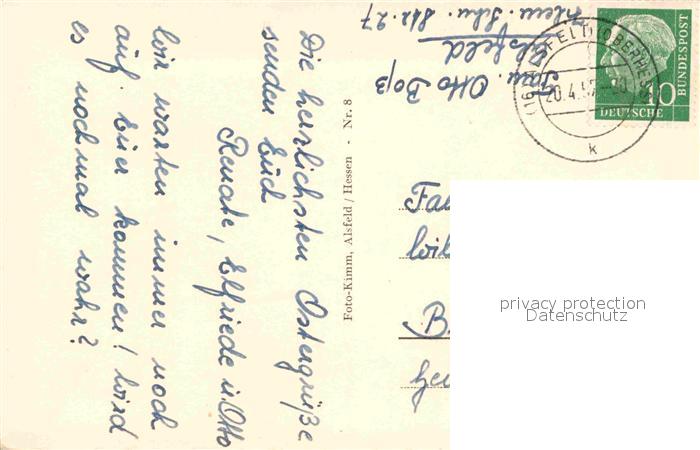 Die herzlichsten Ostergrüße
senden Euch
Renate, Elfriede u. Otto
Wir warten immer noch
auf Euer kommen! Wird
es nochmal wahr?
Foto-Kimm, Alsfeld / Hessen - Nr. 8
Otto Boß
Alsfeld
Str. 27
(16) ALSFELD (OBERHESS
20.4.57
k
10
DEUTSCHE
BUNDESPOST
B.
privacy protection
Datenschutz